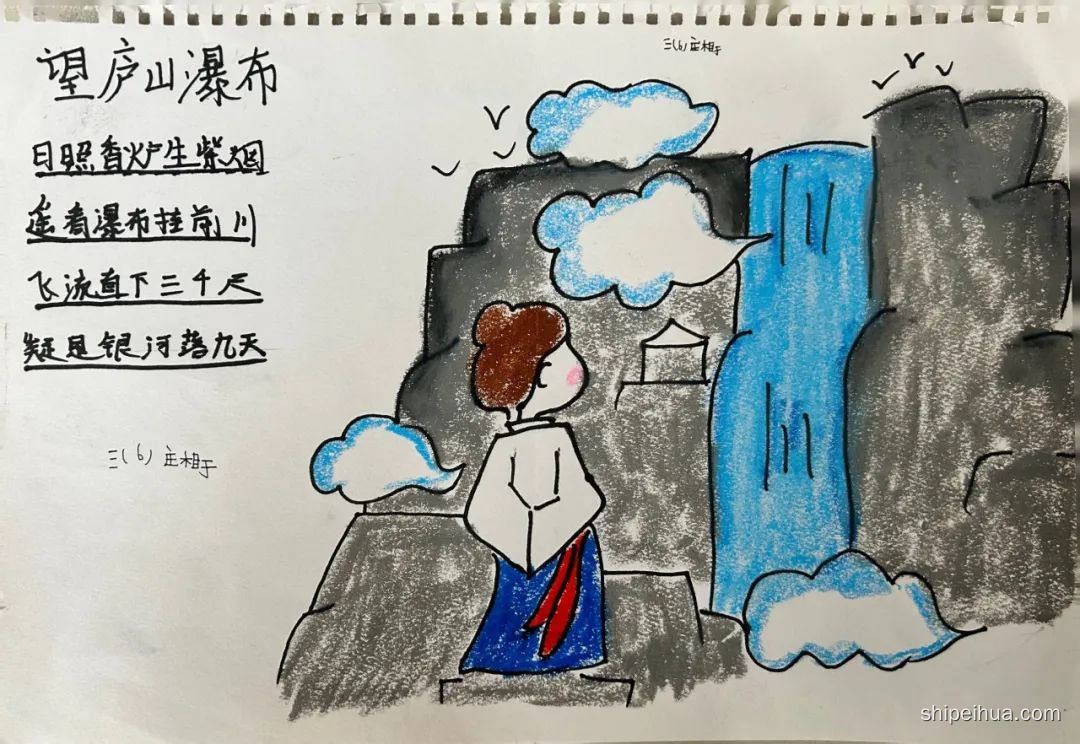 望庐山瀑布
三(6) 庄相于
日照香炉生紫烟
遥看瀑布挂前川
飞流直下三千尺
疑是银河落九天
三(6) 庄相于
shipeihua.com